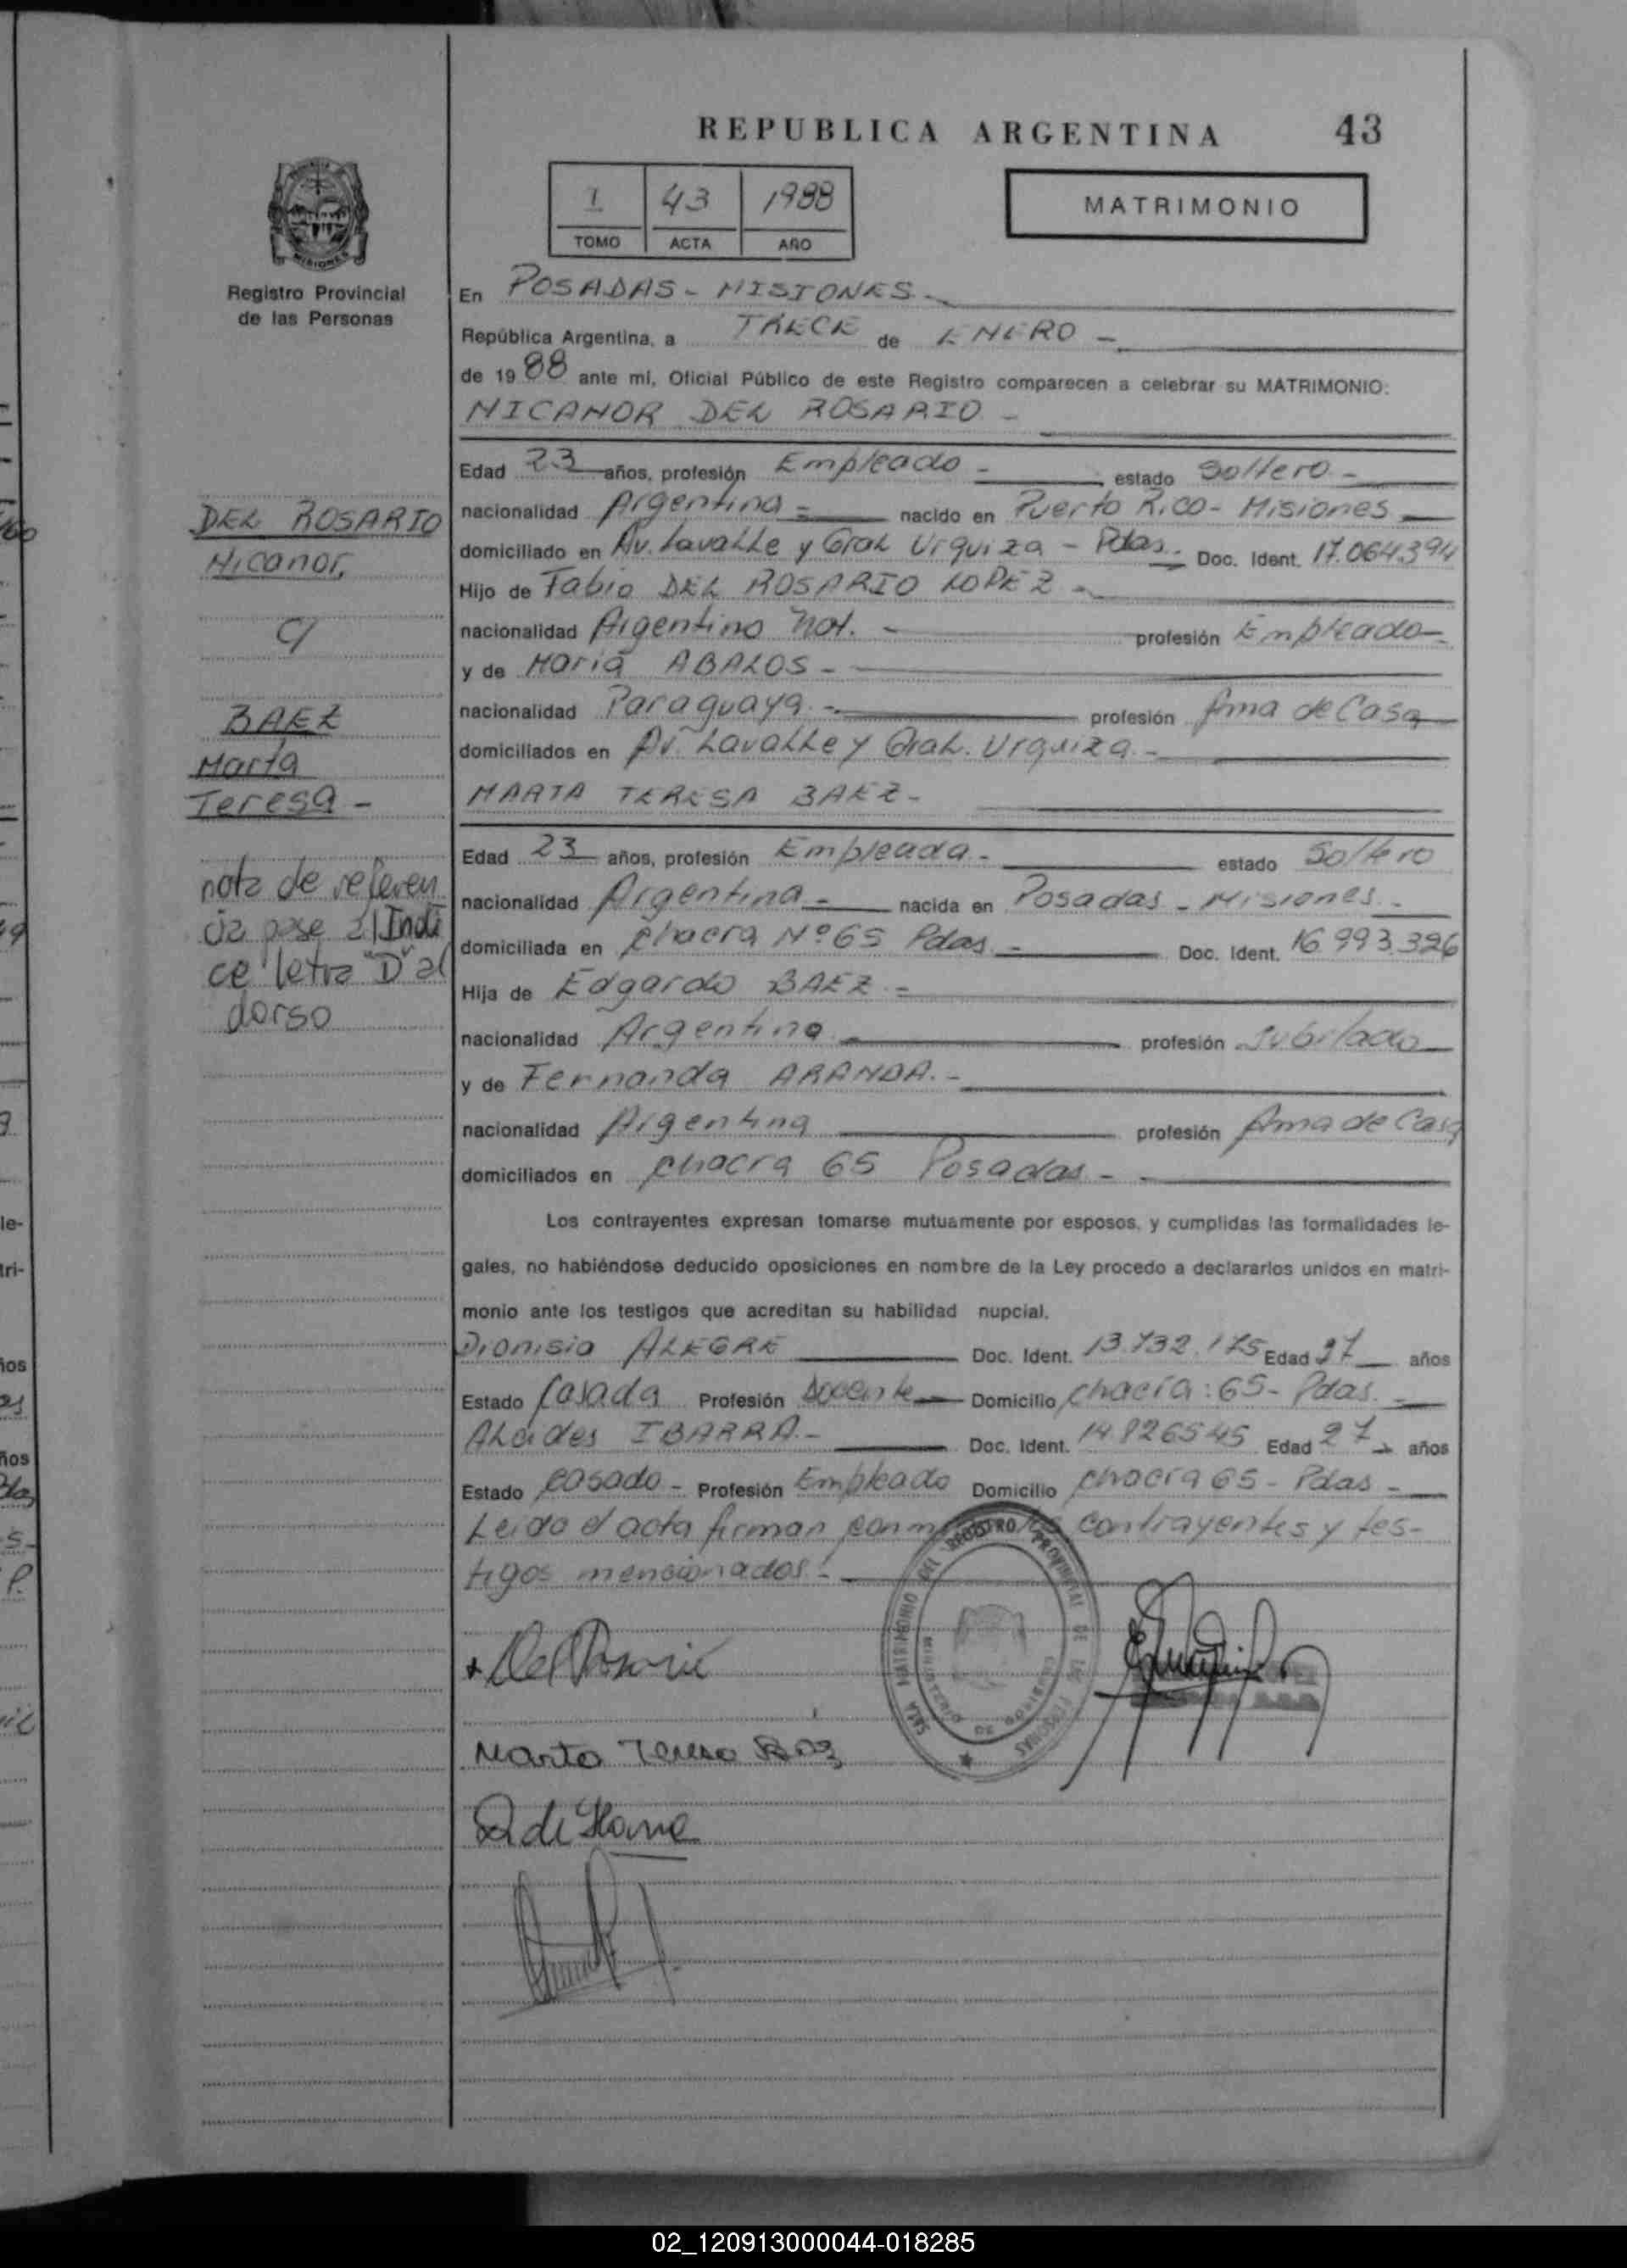 REPUBLICA ARGENTINA
43
I 43 1988
TOMO ACTA AÑO
MATRIMONIO
MISIONES
Registro Provincial
de las Personas
En POSADAS - MISIONES.-
República Argentina, a TRECE de ENERO -
de 1988 ante mi, Oficial Público de este Registro comparecen a celebrar su MATRIMONIO:
NICANOR DEL ROSARIO -
Edad 23 años, profesión Empleado - estado Soltero -
nacionalidad Argentina - nacido en Puerto Rico - Misiones
domiciliado en Av. Lavalle y Gral Urquiza - Pdas. Doc. Ident. 17.064.394
Hijo de Fabio DEL ROSARIO LOPEZ -
nacionalidad Argentino nat. - profesión Empleado -
y de Maria ABALOS -
nacionalidad Paraguaya - profesión Ama de Casa
domiciliados en Av. Lavalle y Gral. Urquiza -
MARTA TERESA BAEZ -
Edad 23 años, profesión Empleada - estado Soltero
nacionalidad Argentina - nacida en Posadas - Misiones -
domiciliada en Chacra Nº 65 Pdas. - Doc. Ident. 16.993.326
Hija de Edgardo BAEZ -
nacionalidad Argentino profesión Jubilado
y de Fernanda ARANDA. -
nacionalidad Argentina profesión Ama de Casa
domiciliados en Chacra 65 Posadas -
Los contrayentes expresan tomarse mutuamente por esposos, y cumplidas las formalidades le-
gales, no habiéndose deducido oposiciones en nombre de la Ley procedo a declararlos unidos en matri-
monio ante los testigos que acreditan su habilidad nupcial.
Dionisia ALEGRE Doc. Ident. 13.732.175 Edad años
Estado Casada Profesión Docente Domicilio Chacra: 65 - Pdas.
Alcides IBARRA - Doc. Ident. 14826545 Edad 27 años
Estado Casado - Profesión Empleado Domicilio Chacra 65 - Pdas -
Leida el acta firman contrayentes y tes-
tigos mencionados! -
Del Rosario
Marta Teresa Baez
SALA MATRIMONIO DEL REGISTRO PROVINCIAL DE LAS PERSONAS
DEL ROSARIO
Nicanor,
c/
BAEZ
Marta
Teresa -
nota de referen
cia pase al Indi
ce letra "D" al
dorso
02_120913000044-018285